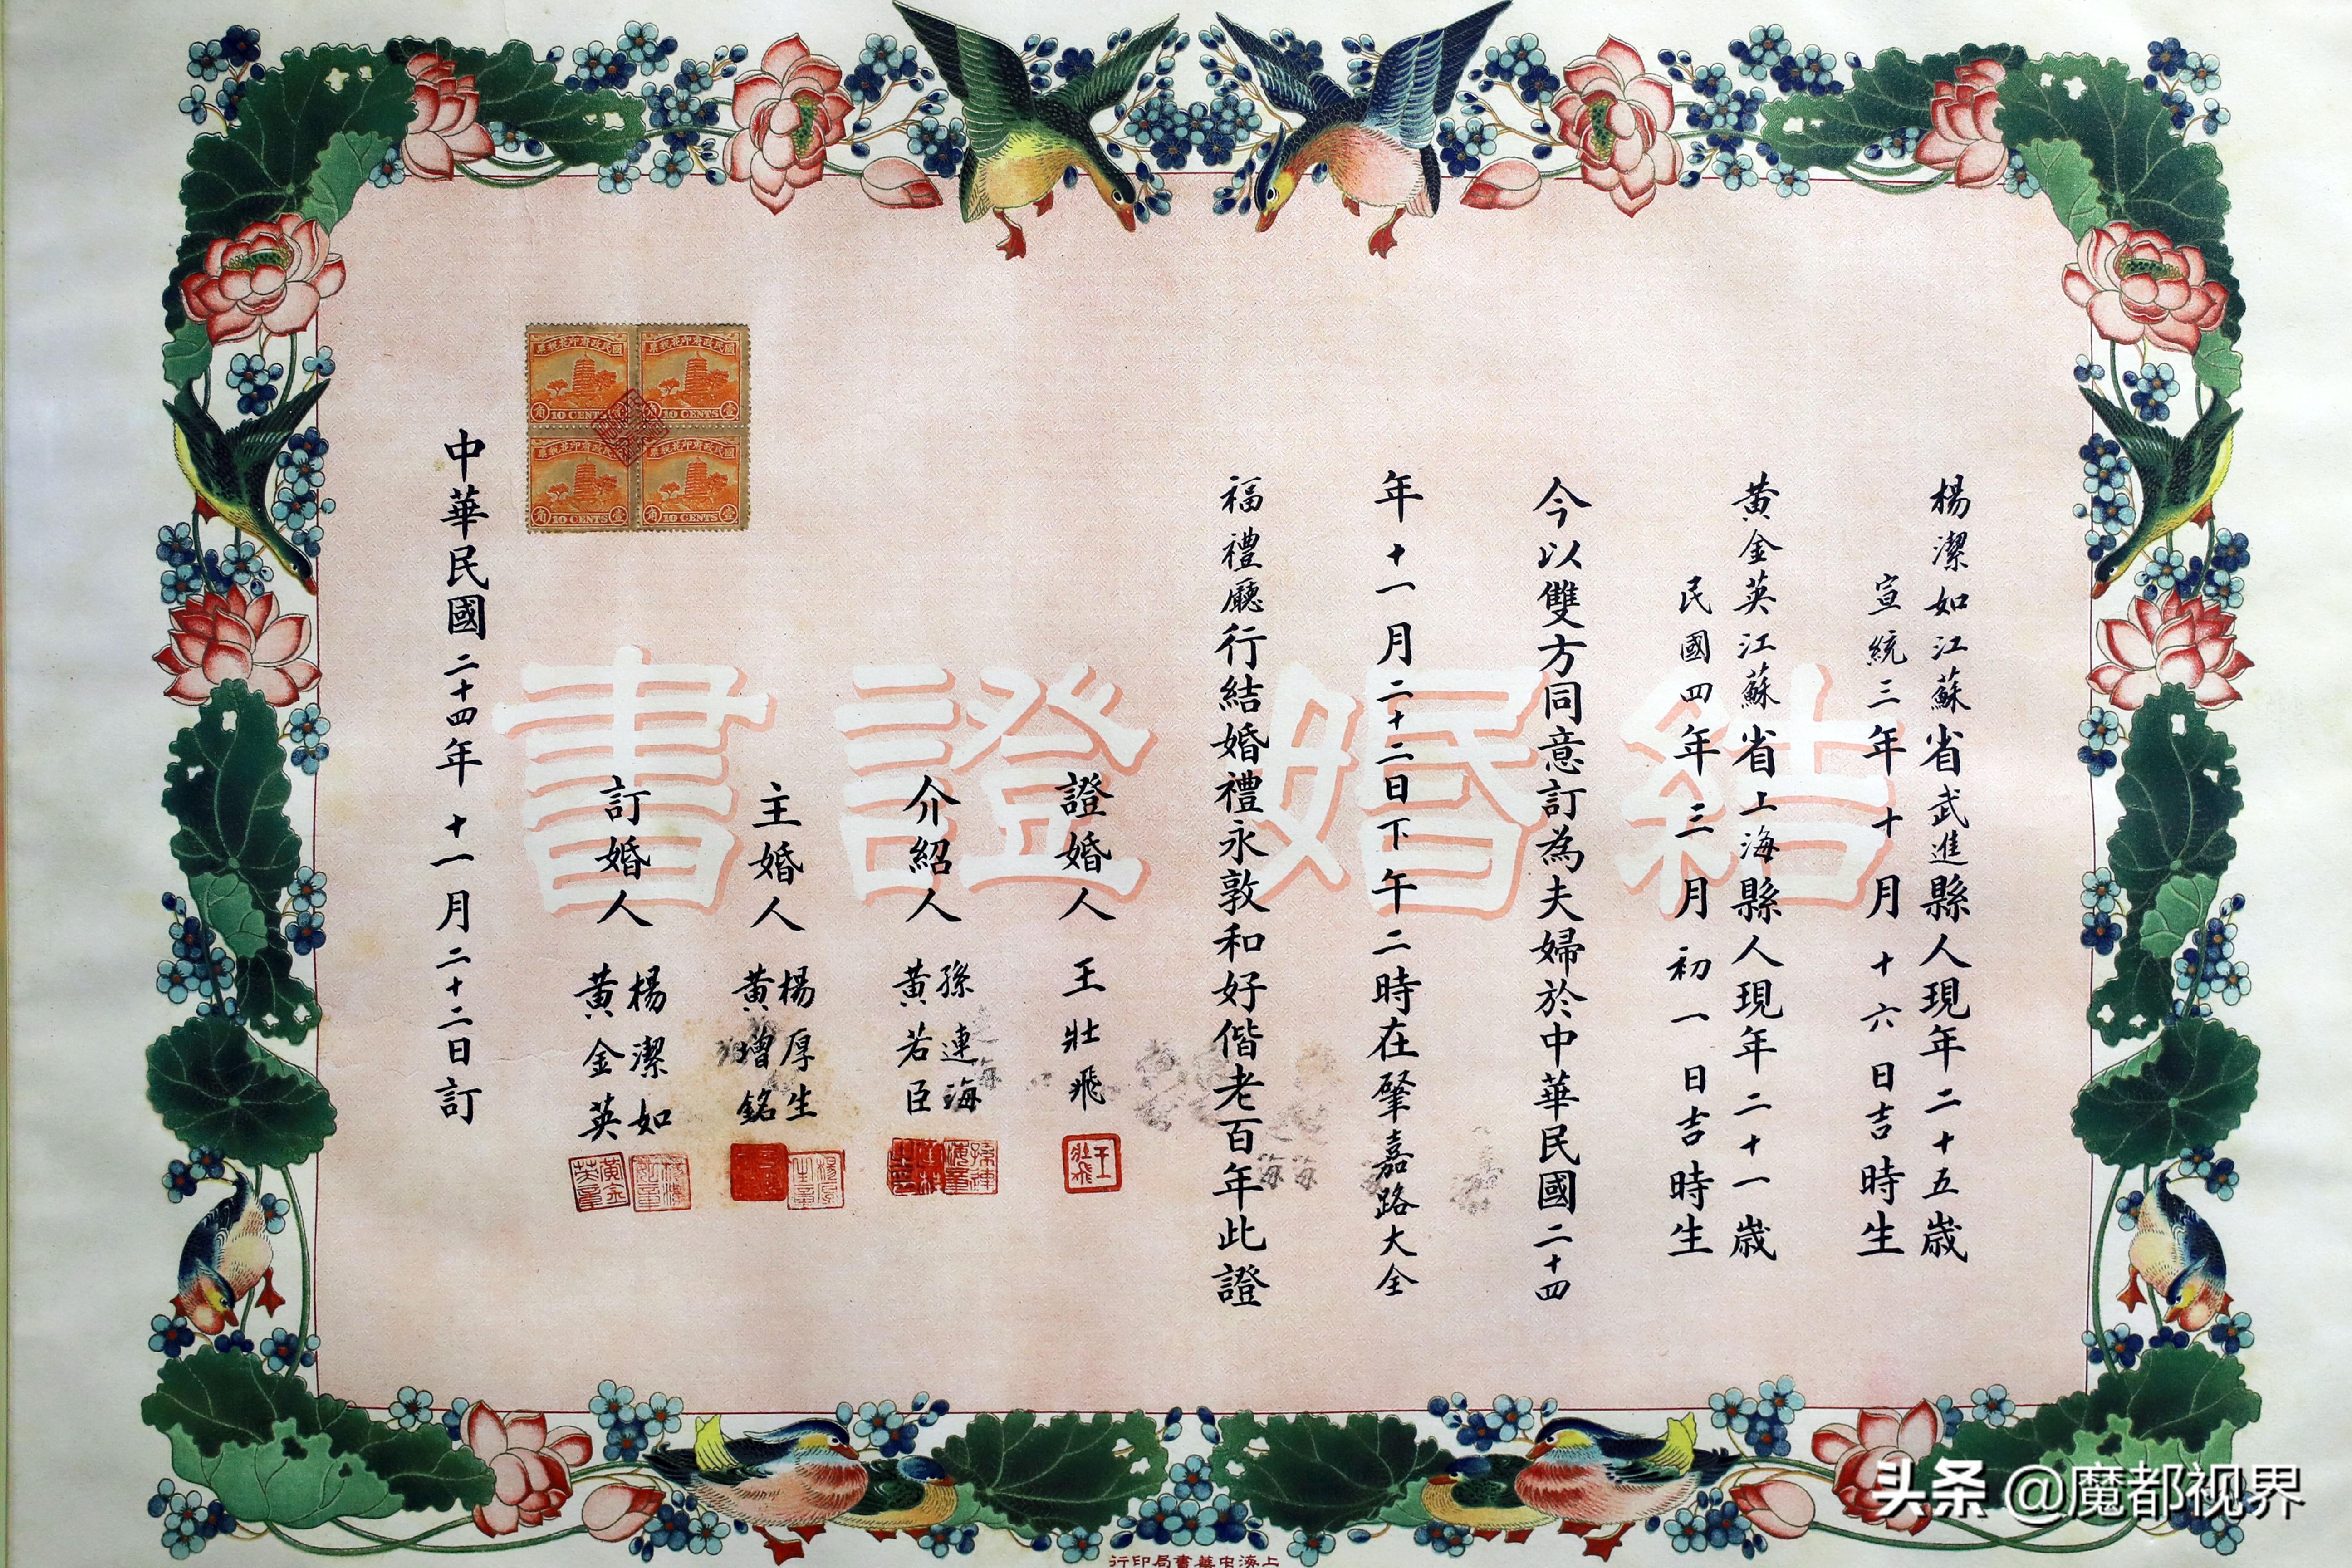 結婚證書
楊潔如江蘇省武進縣人現年二十五歲
宣統三年十月十六日吉時生
黃金英江蘇省上海縣人現年二十一歲
民國四年三月初一日吉時生
今以雙方同意訂為夫婦於中華民國二十四
年十一月二十二日下午二時在肇嘉路大全
福禮廳行結婚禮永敦和好偕老百年此證
證婚人 王壯飛
王壯飛
介紹人 孫連海
黃若臣
主婚人 楊厚生
黃增銘
訂婚人 楊潔如
黃金英
國民政府印花稅票
壹角
10 CENTS
國民政府印花稅票
壹角
10 CENTS
國民政府印花稅票
壹角
10 CENTS
國民政府印花稅票
壹角
10 CENTS
中華民國二十四年十一月二十二日訂
上海中華書局印行
头条 @魔都视界